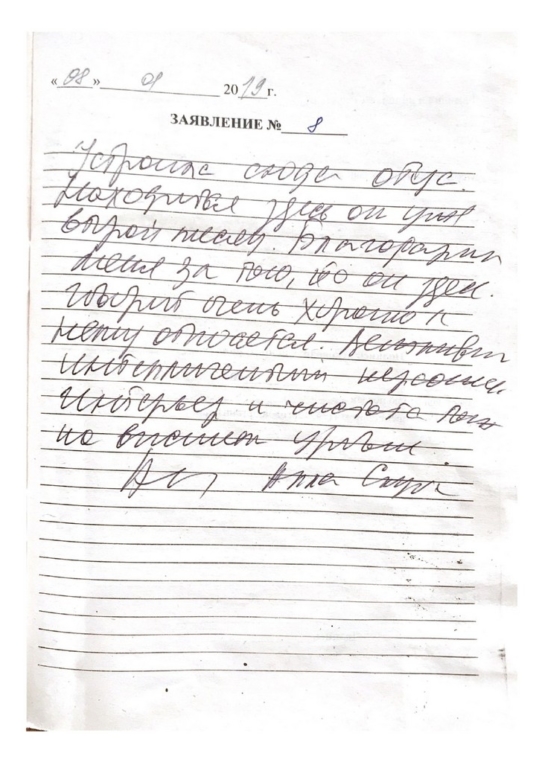 «08» 01 2019 г.
ЗАЯВЛЕНИЕ № 8
Устроила сюда
Находится здесь он уже
второй месяц. Благодарит
меня за то, что он здесь.
Говорит очень хорошо к
нему относятся. Вежливый
интеллигентный персонал.
Интерьер и чистота тоже
на высшем уровне.
Анна